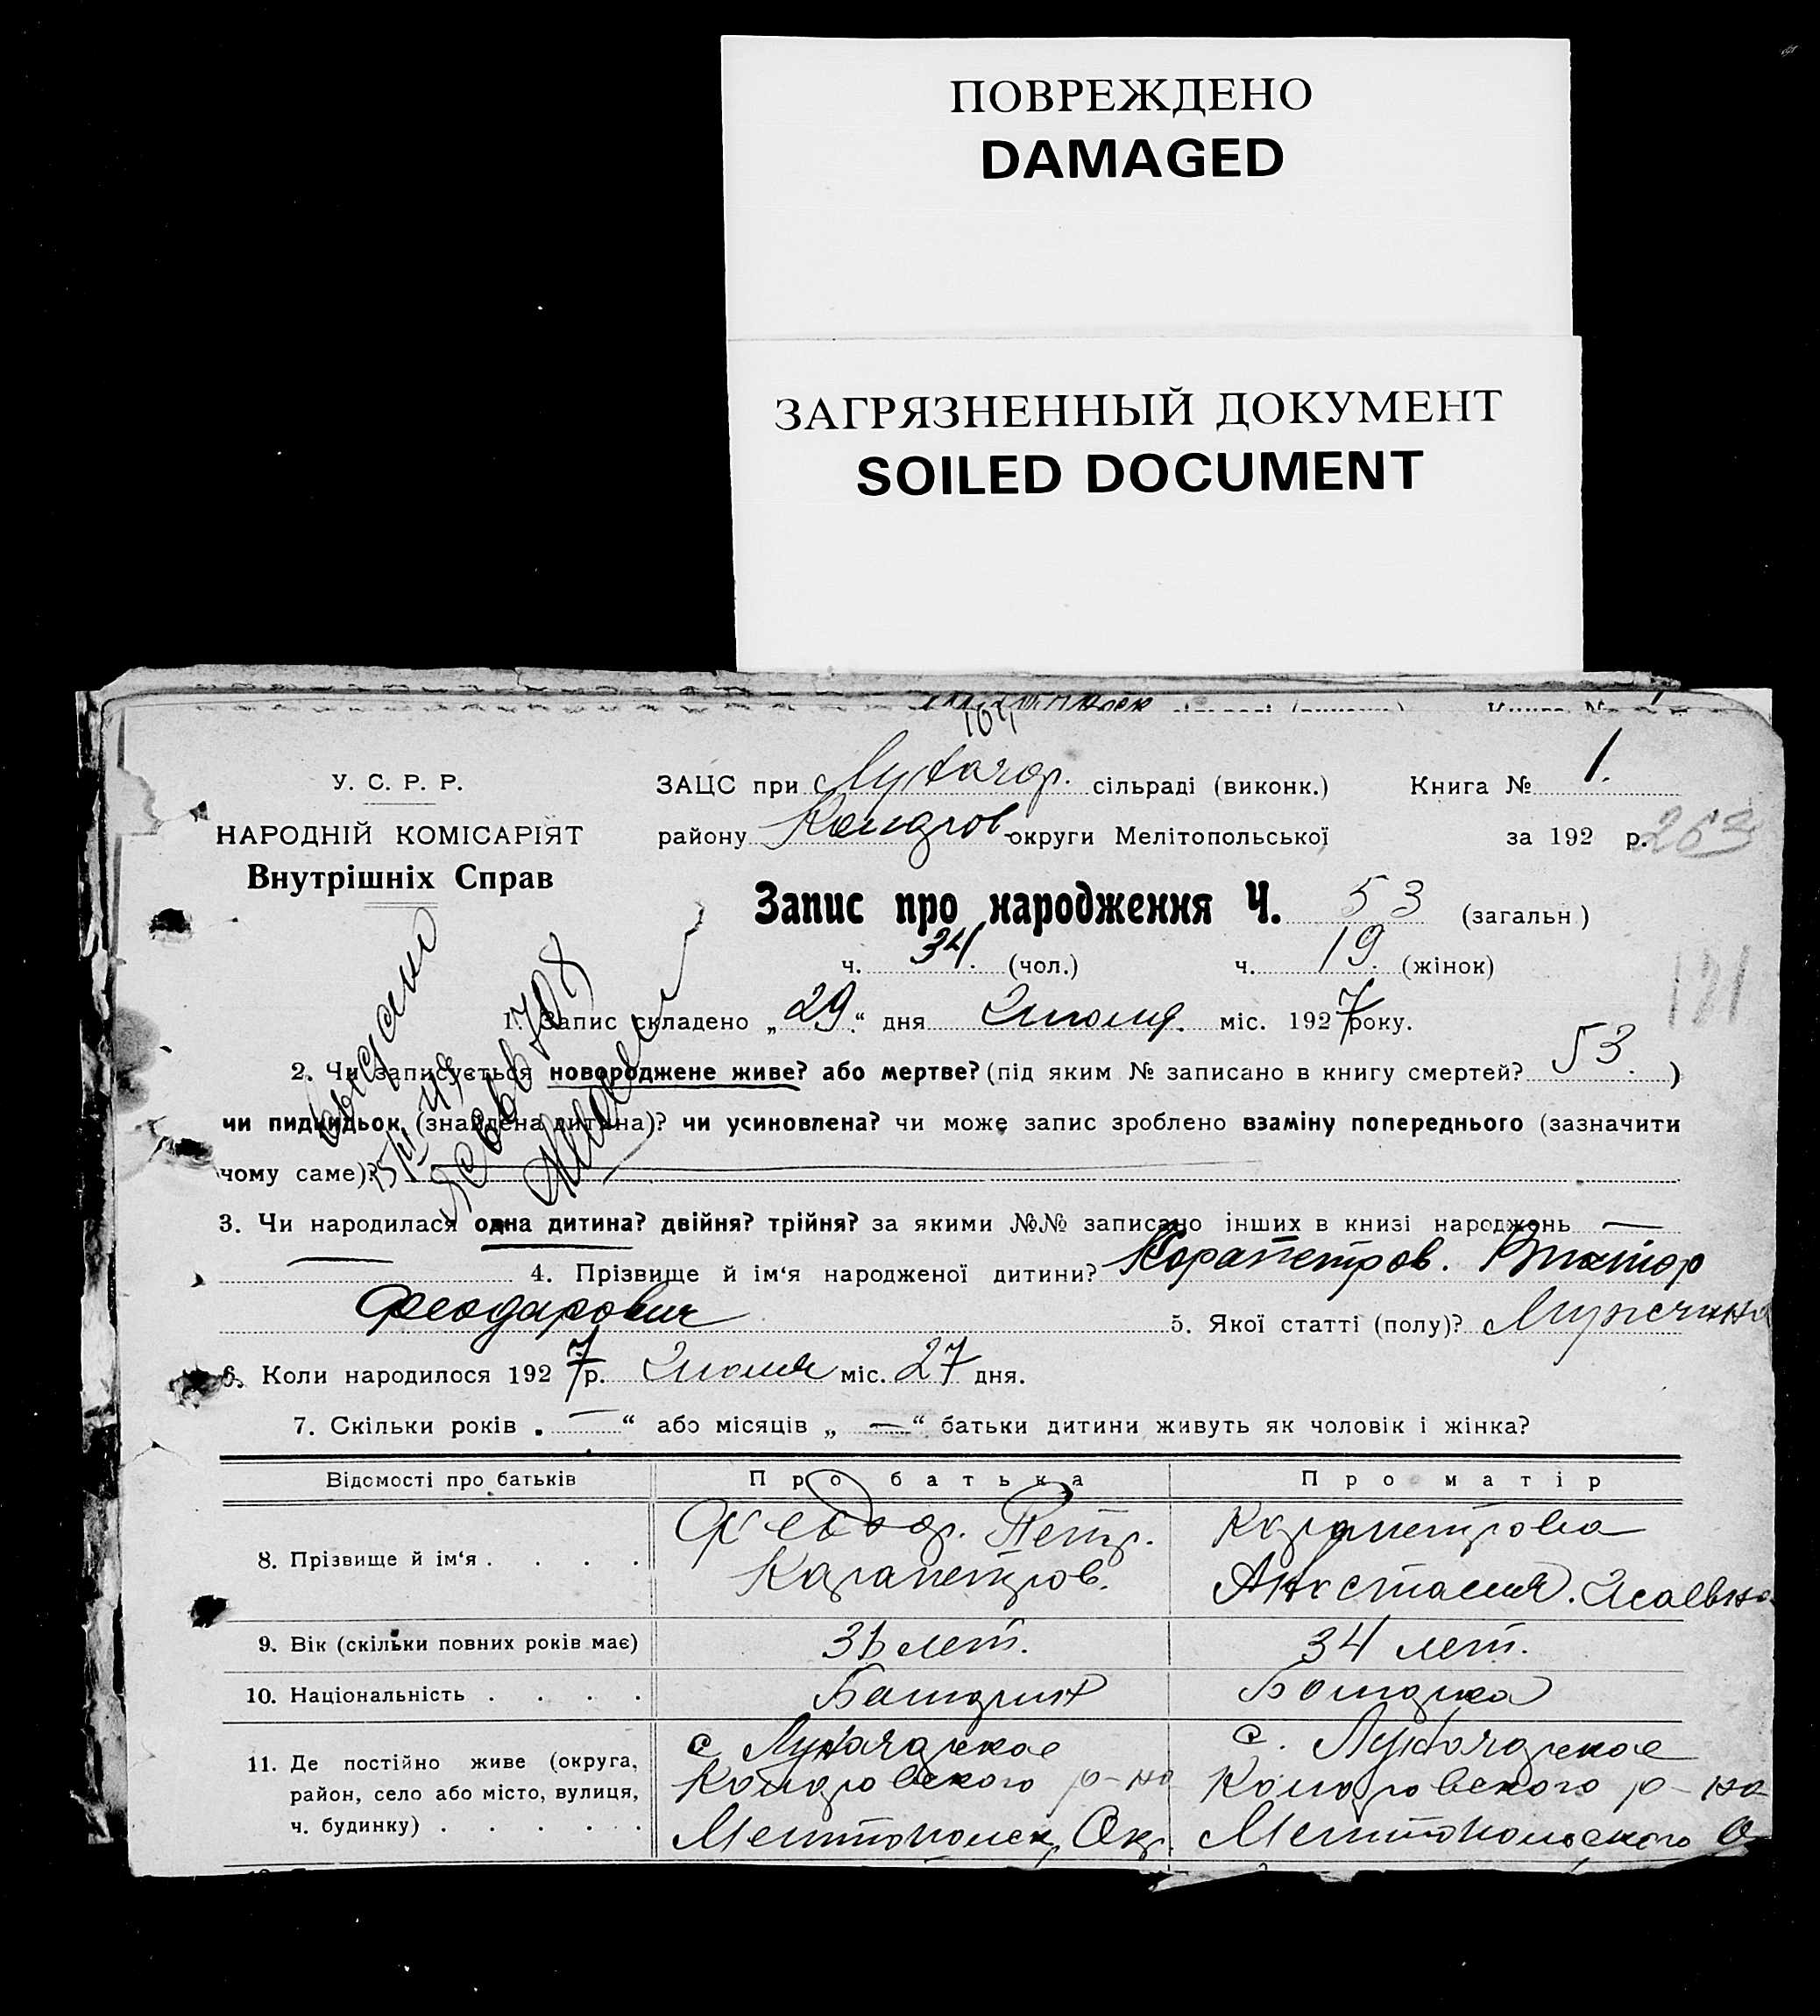 ПОВРЕЖДЕНО
DAMAGED
ЗАГРЯЗНЕННЫЙ ДОКУМЕНТ
SOILED DOCUMENT
У. С. Р. Р.
НАРОДНІЙ КОМІСАРІЯТ
Внутрішніх Справ
ЗАЦС при сільраді (виконк.) Книга № 1.
району округи Мелітопольської за 192 р.
263
Запис про народження Ч. 53 (загальн.)
ч. 34. (чол.) ч. 19. (жінок)
181
1. Запис складено „29“ дня Июля. міс. 1927 року.
2. Чи записується новороджене живе? або мертве? (під яким № записано в книгу смертей? 53.)
чи підкидьок (знайдена дитина)? чи усиновлена? чи може запис зроблено взаміну попереднього (зазначити
чому саме)?
3. Чи народилася одна дитина? двійня? трійня? за якими №№ записано інших в книзі народжень —
— 4. Прізвище й ім‘я народженої дитини? Карапетров. Виктор
Феодарович 5. Якої статті (полу)? Мужчина
6. Коли народилося 1927 р. Июля міс. 27 дня.
7. Скільки років „ — “ або місяців „ — “ батьки дитини живуть як чоловік і жінка?
Відомості про батьків Про батька Про матір
8. Прізвище й ім‘я . . . . Феодор. Петр. Карапетров. Карапетрова Анастасия. Исаевна
9. Вік (скільки повних років має) лет. 34 лет.
10. Національність . . . . Болгарин Болгарка
11. Де постійно живе (округа, район, село або місто, вулиця, ч. будинку) . . . . . с. р-на Мелитопольск. Окр. с. р-на Мелитопольского О